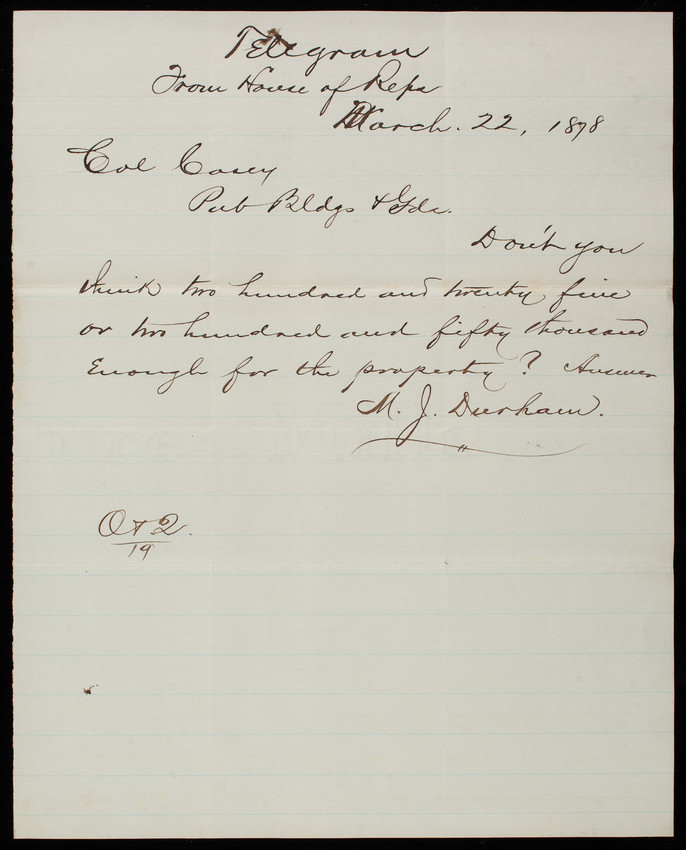 Telegram
From House of Reps
March. 22, 1878
Col Casey
Pub Bldgs & Gds.
Don't you
think two hundred and twenty five
or two hundred and fifty thousand
Enough for the property? Answer
M. J. Durham.
O & 2.
19